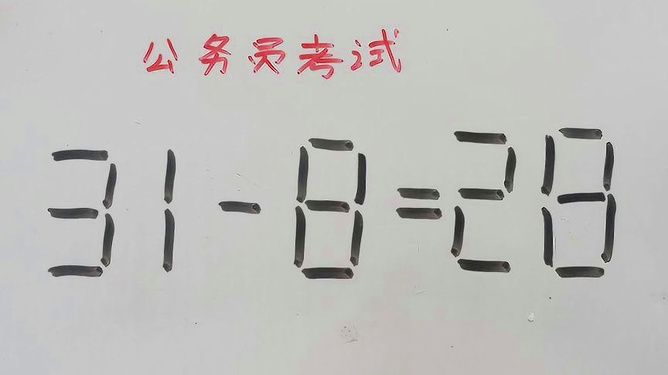 公务员考试
31-8=28